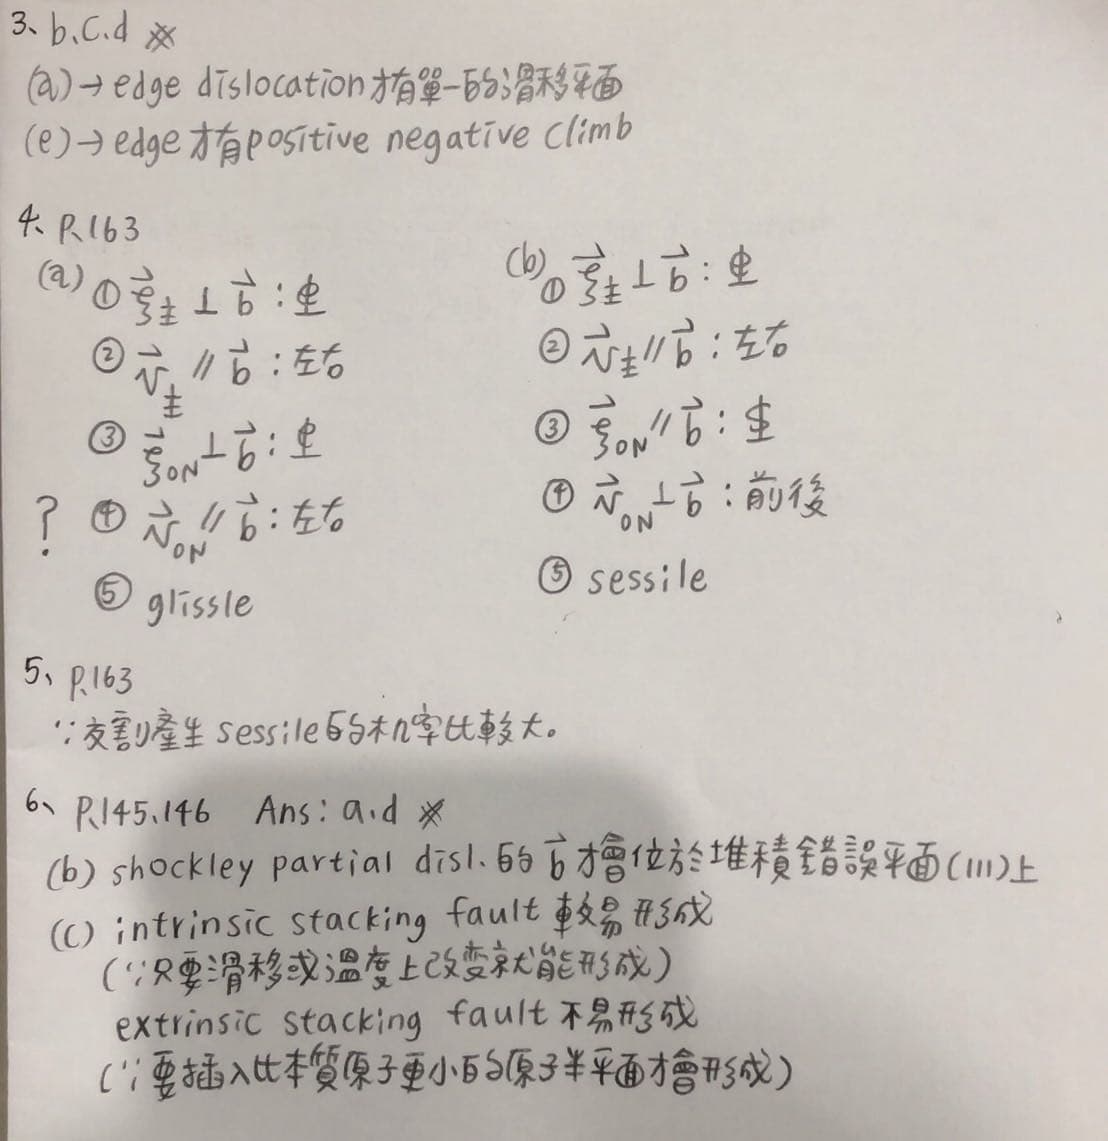 3、b.c.d ※
(a)→edge dislocation才有單一的滑移平面
(e)→edge才有positive negative climb
4、P.163
(a) ① ξ⃗主 ⊥ b⃗:
② v⃗主 // b⃗:左右
③ ξ⃗ON ⊥ b⃗:
? ④ v⃗ON // b⃗:左右
⑤ glissle
(b) ① ξ⃗主 ⊥ b⃗:
② v⃗主 // b⃗:左右
③ ξ⃗ON // b⃗:
④ v⃗ON ⊥ b⃗:前後
⑤ sessile
5、P.163
∵交割產生sessile的机率比較大。
6、P.145、146 Ans:a.d ※
(b) shockley partial disl.的b⃗才會位於堆積錯誤平面(111)上
(c) intrinsic stacking fault 較易形成
(∵只要滑移或溫度上改變就能形成)
extrinsic stacking fault 不易形成
(∵要插入比本質原子更小的原子半平面才會形成)